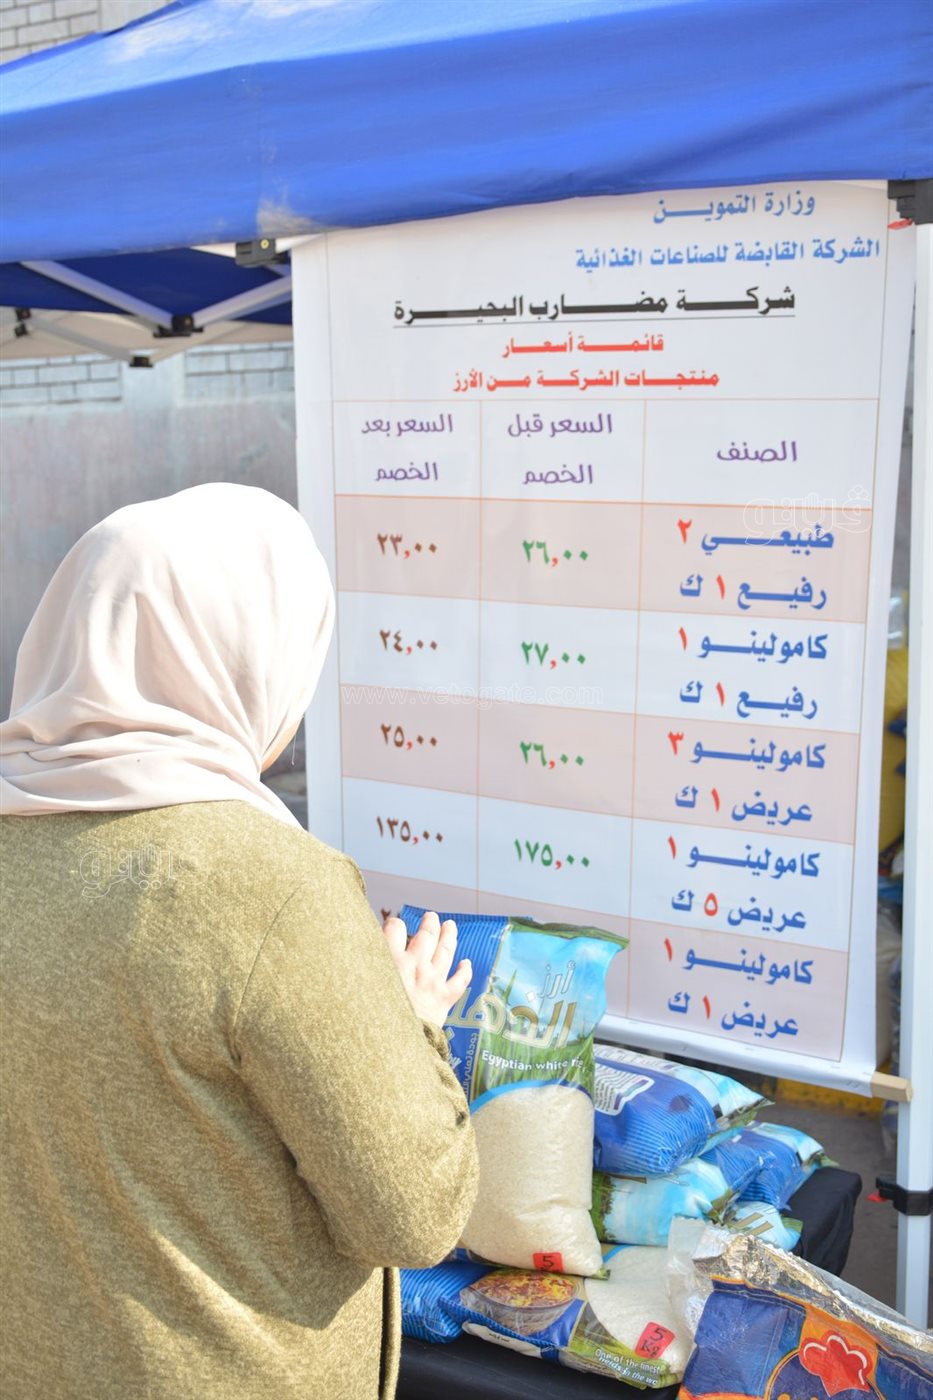 وزارة التموين
الشركة القابضة للصناعات الغذائية
شركة مضارب البحيرة
قائمة أسعار
منتجات الشركة من الأرز
الصنف السعر قبل الخصم السعر بعد الخصم
طبيعي ٢ رفيع ١ ك ٢٦,٠٠ ٢٣,٠٠
كامولينو ١ رفيع ١ ك ٢٧,٠٠ ٢٤,٠٠
كامولينو ٣ عريض ١ ك ٢٦,٠٠ ٢٥,٠٠
كامولينو ١ عريض ٥ ك ١٧٥,٠٠ ١٣٥,٠٠
كامولينو ١ عريض ١ ك
فيتو
www.vetogate.com
فيتو
أرز
Egyptian white
5
5
KG
One of the finest